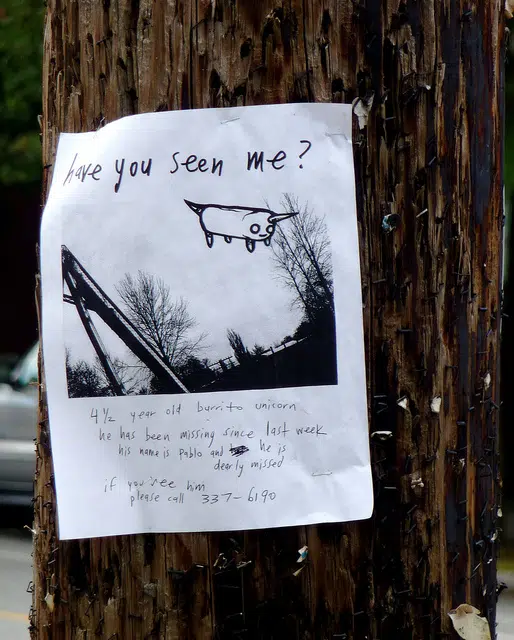 have you seen me?
4½ year old burrito unicorn
he has been missing since last week
his name is Pablo and he is
dearly missed
if you see him
please call 337-6190